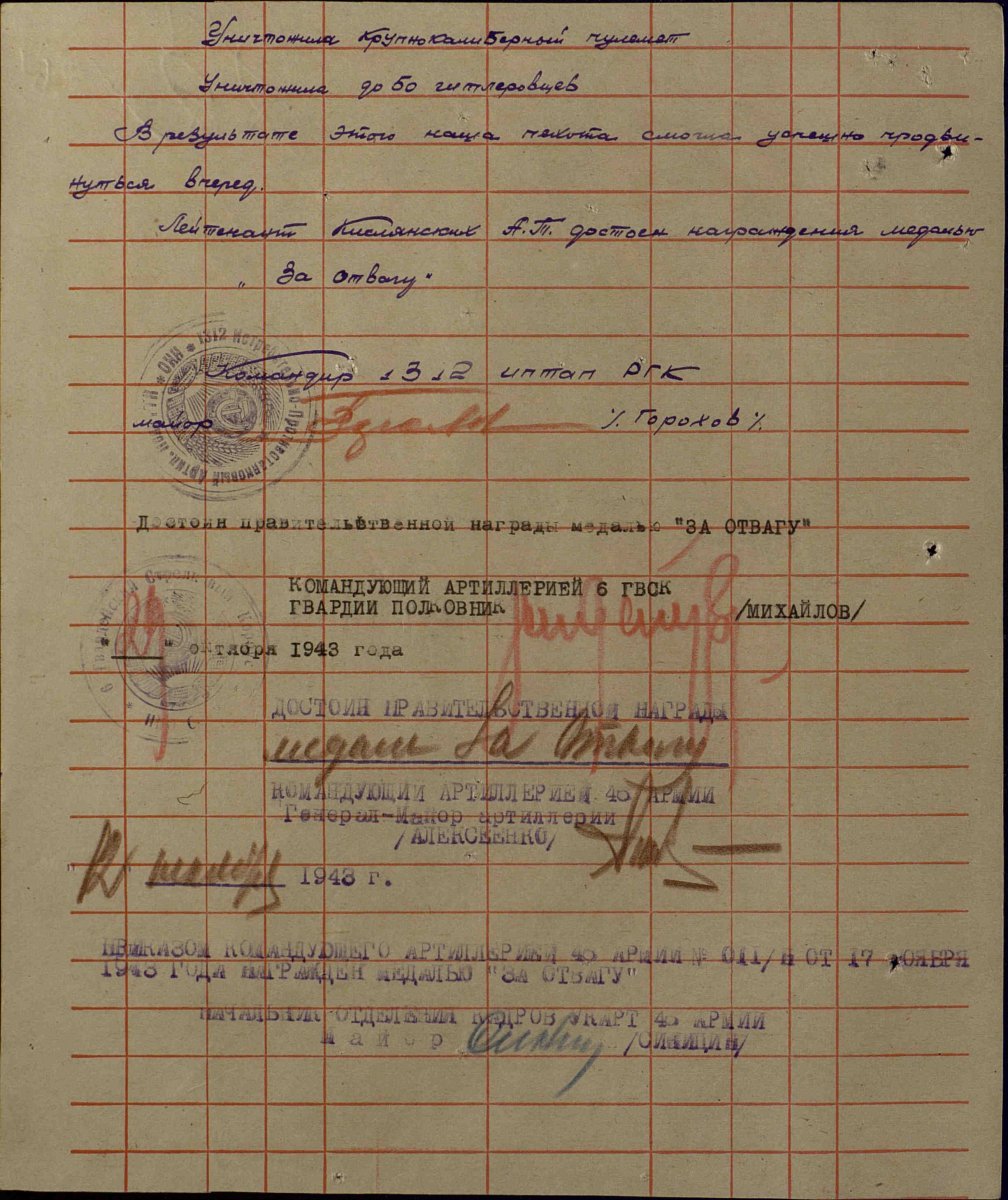 Уничтожила крупнокалиберный пулемет
Уничтожила до 50 гитлеровцев
В результате этого наша пехота смогла успешно продви-
нуться вперед.
Лейтенант Кислянских А.П. достоен награждения медалью
"За отвагу"
* ОКН * 1312 Истребительно-Противотанковый Артил.
Командир 1312 иптап РГК
майор /. Горохов /.
Достоин правительственной награды медалью "ЗА ОТВАГУ"
КОМАНДУЮЩИЙ АРТИЛЛЕРИЕЙ 6 ГВСК
ГВАРДИИ ПОЛКОВНИК /МИХАЙЛОВ/
"29" октября 1943 года
ДОСТОИН ПРАВИТЕЛЬСТВЕННОЙ НАГРАДЫ
медали За Отвагу
КОМАНДУЮЩИЙ АРТИЛЛЕРИЕЙ АРМИИ
Генерал-Майор артиллерии
/АЛЕКСЕЕНКО/
"12" ноября 1943 г.
ПРИКАЗОМ КОМАНДУЮЩЕГО АРТИЛЛЕРИЕЙ АРМИИ № 011/Н ОТ 17 НОЯБРЯ
1943 ГОДА НАГРАЖДЕН МЕДАЛЬЮ "ЗА ОТВАГУ"
НАЧАЛЬНИК ОТДЕЛЕНИЯ КАДРОВ УКАРТ АРМИИ
Майор /СИНИЦИН/